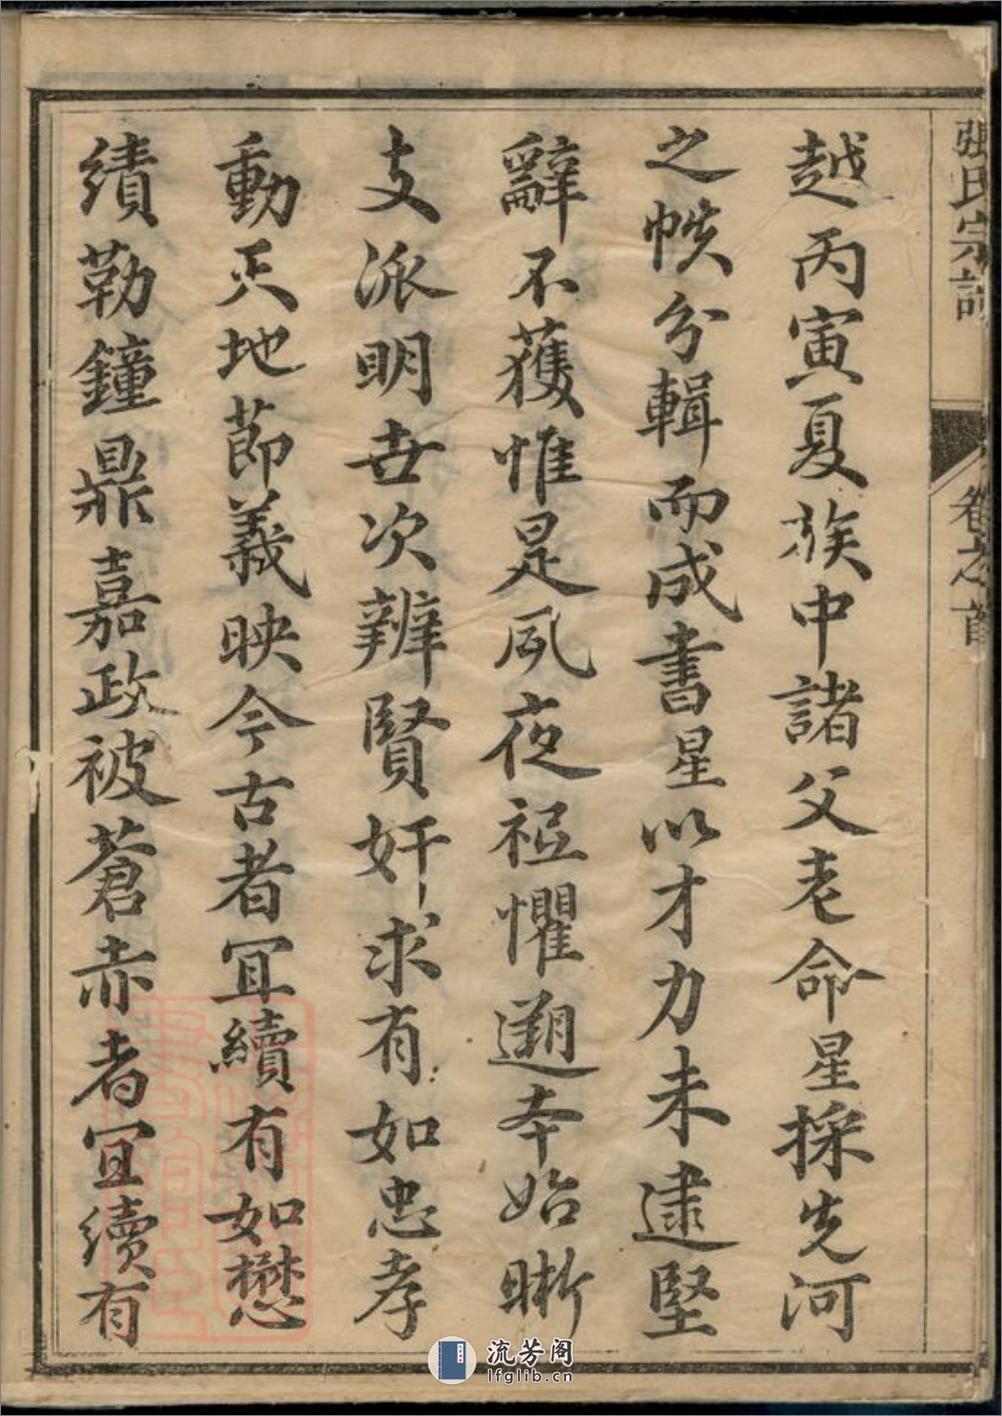 張氏宗譜
卷之首
越丙寅夏族中諸父老命星採先河
之帙分輯而成書星以才力未逮堅
辭不獲惟是夙夜祗懼遡本始晣
支派明世次辨賢奸求有如忠孝
動天地節義映今古者冝續有如懋
績勒鐘鼎嘉政被蒼赤者冝續有
流芳阁
lfglib.cn